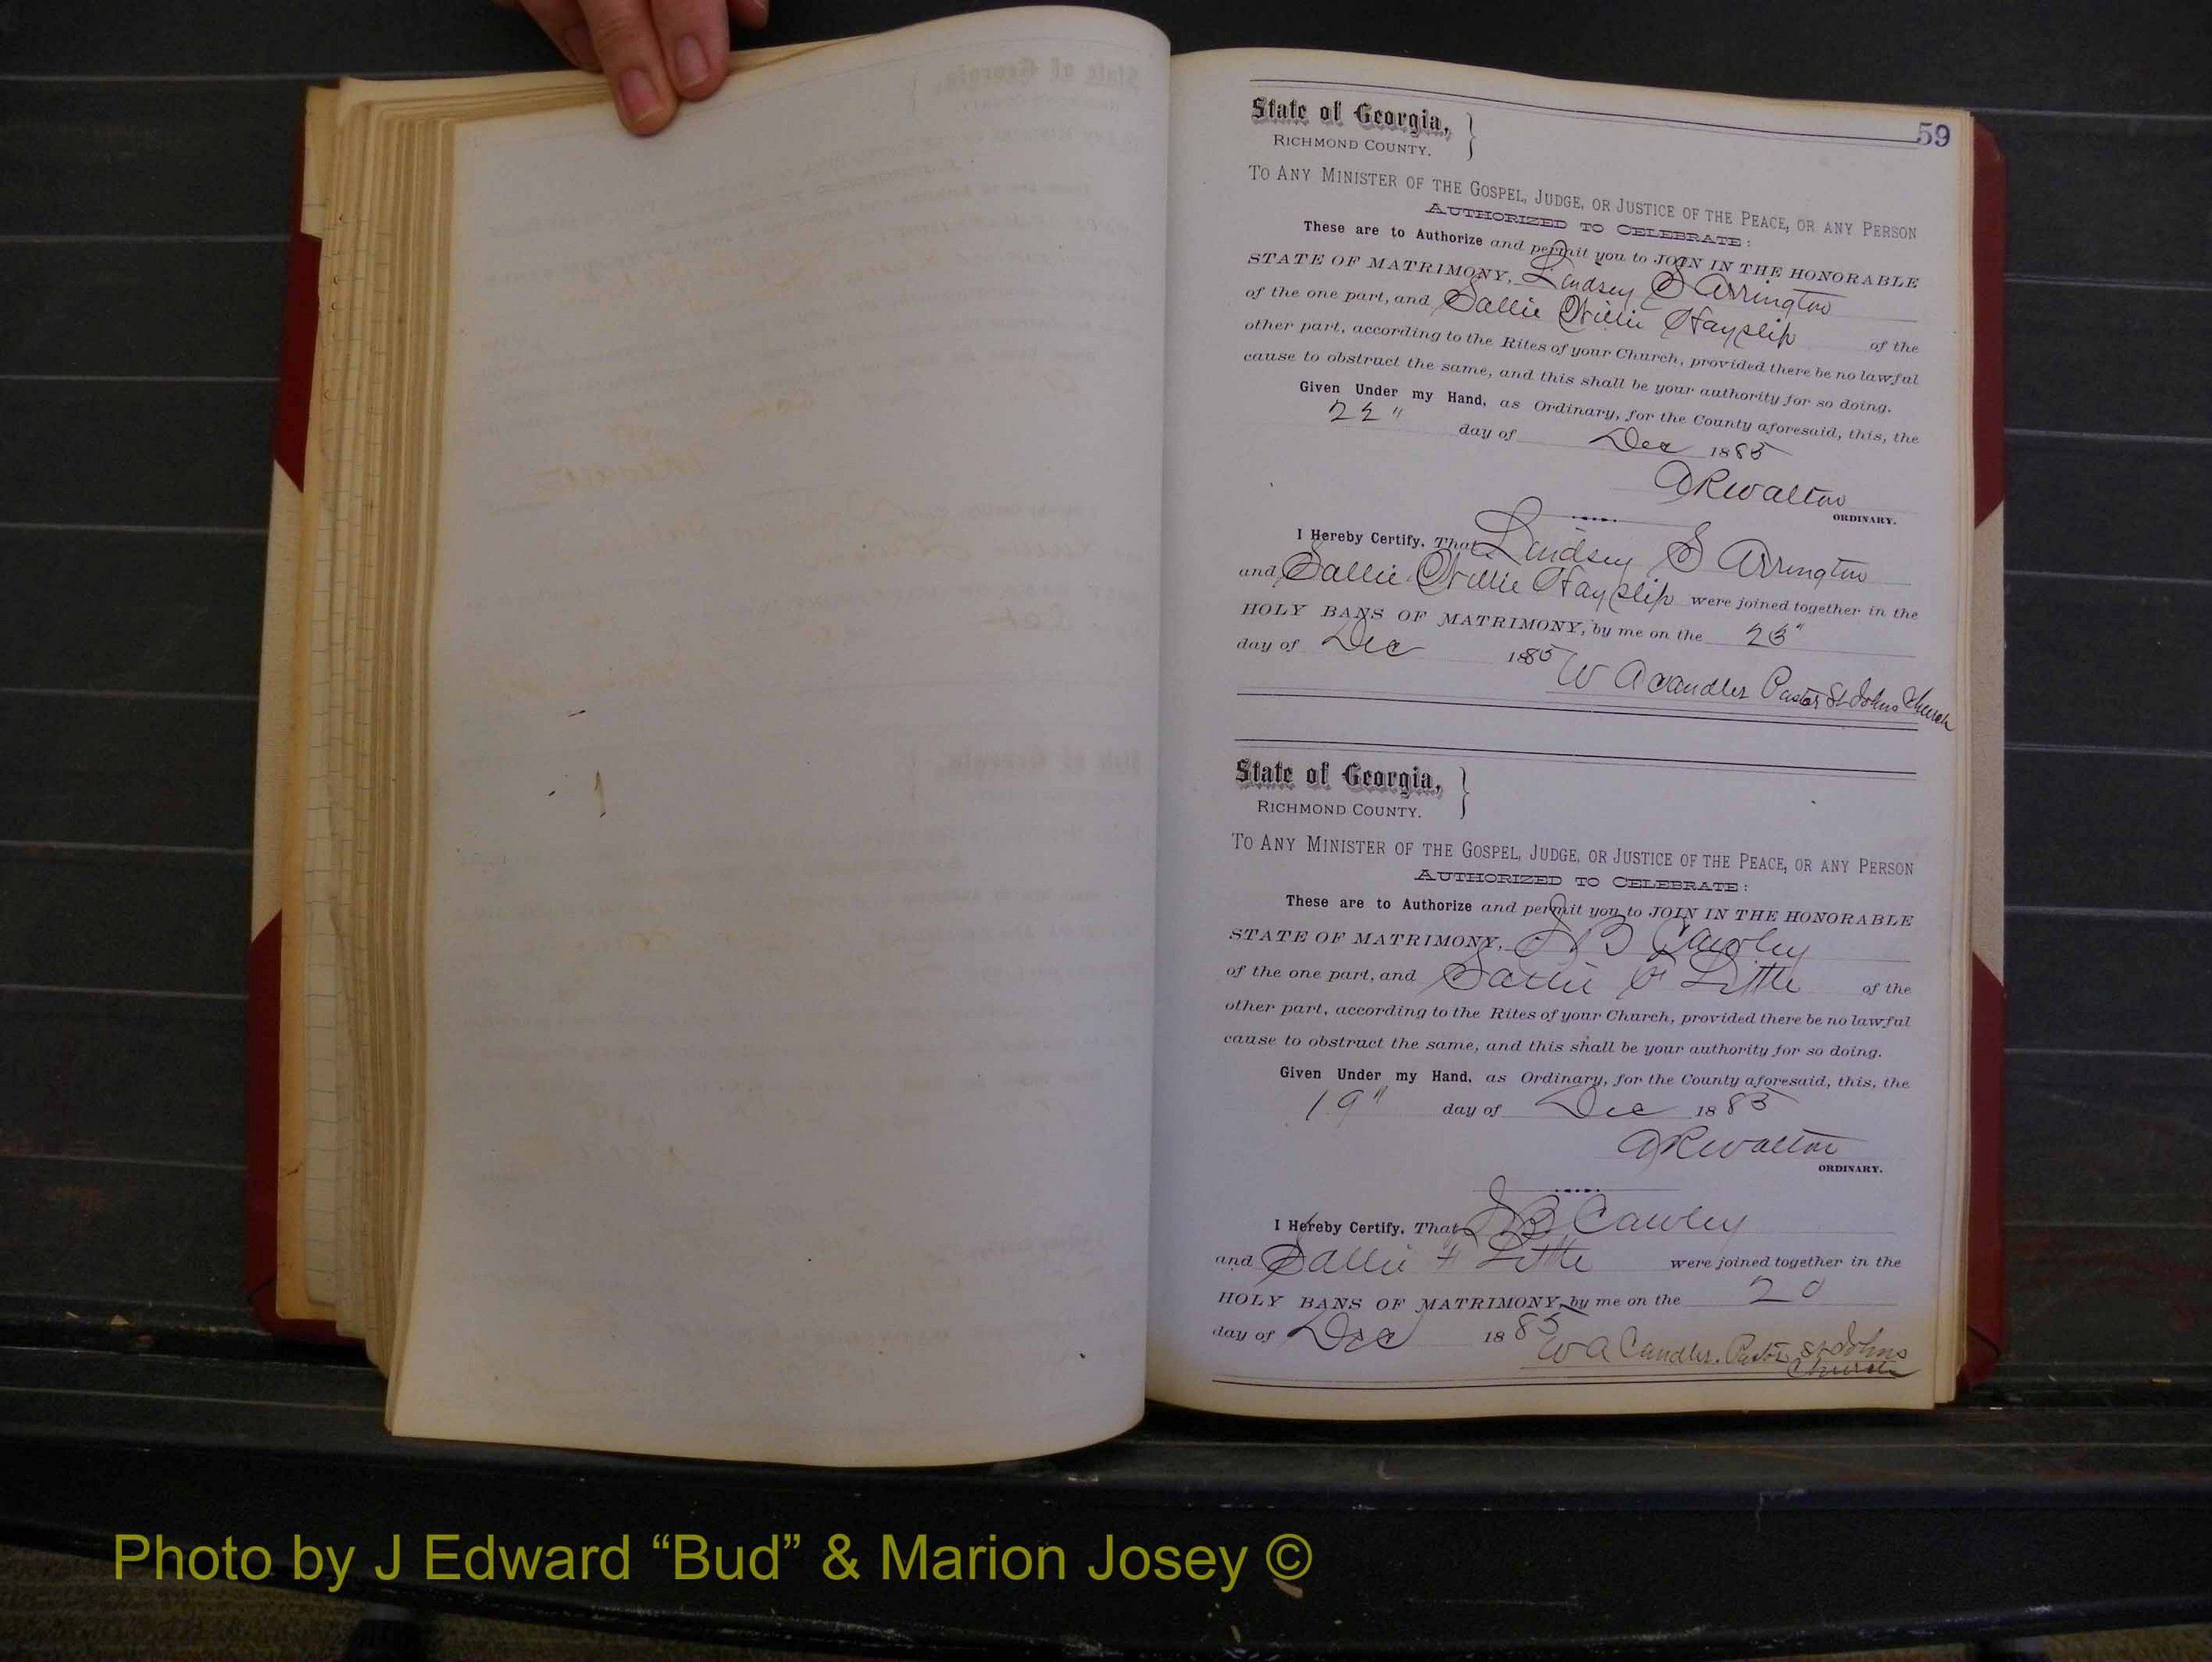 59
State of Georgia,
RICHMOND COUNTY.
TO ANY MINISTER OF THE GOSPEL, JUDGE, OR JUSTICE OF THE PEACE, OR ANY PERSON
AUTHORIZED TO CELEBRATE:
These are to Authorize and permit you to JOIN IN THE HONORABLE
STATE OF MATRIMONY, Lindsey S Arrington
of the one part, and Sallie Willie Hayslip of the
other part, according to the Rites of your Church, provided there be no lawful
cause to obstruct the same, and this shall be your authority for so doing.
Given Under my Hand, as Ordinary, for the County aforesaid, this, the
22"
day of Dec 1885
A R Walton
ORDINARY.
I Hereby Certify, That Lindsey S Arrington
and Sallie Willie Hayslip were joined together in the
HOLY BANS OF MATRIMONY, by me on the 23"
day of Dec 1885
W A Candler Pastor St Johns Church
State of Georgia,
RICHMOND COUNTY.
TO ANY MINISTER OF THE GOSPEL, JUDGE, OR JUSTICE OF THE PEACE, OR ANY PERSON
AUTHORIZED TO CELEBRATE:
These are to Authorize and permit you to JOIN IN THE HONORABLE
STATE OF MATRIMONY, B Cawley
of the one part, and Sallie F Little of the
other part, according to the Rites of your Church, provided there be no lawful
cause to obstruct the same, and this shall be your authority for so doing.
Given Under my Hand, as Ordinary, for the County aforesaid, this, the
19" day of Dec 1885
A R Walton
ORDINARY.
I Hereby Certify, That B Cawley
and Sallie F Little were joined together in the
HOLY BANS OF MATRIMONY, by me on the 20
day of Dec 1885
W A Candler. Pastor St Johns
Church
Photo by J Edward “Bud” & Marion Josey ©